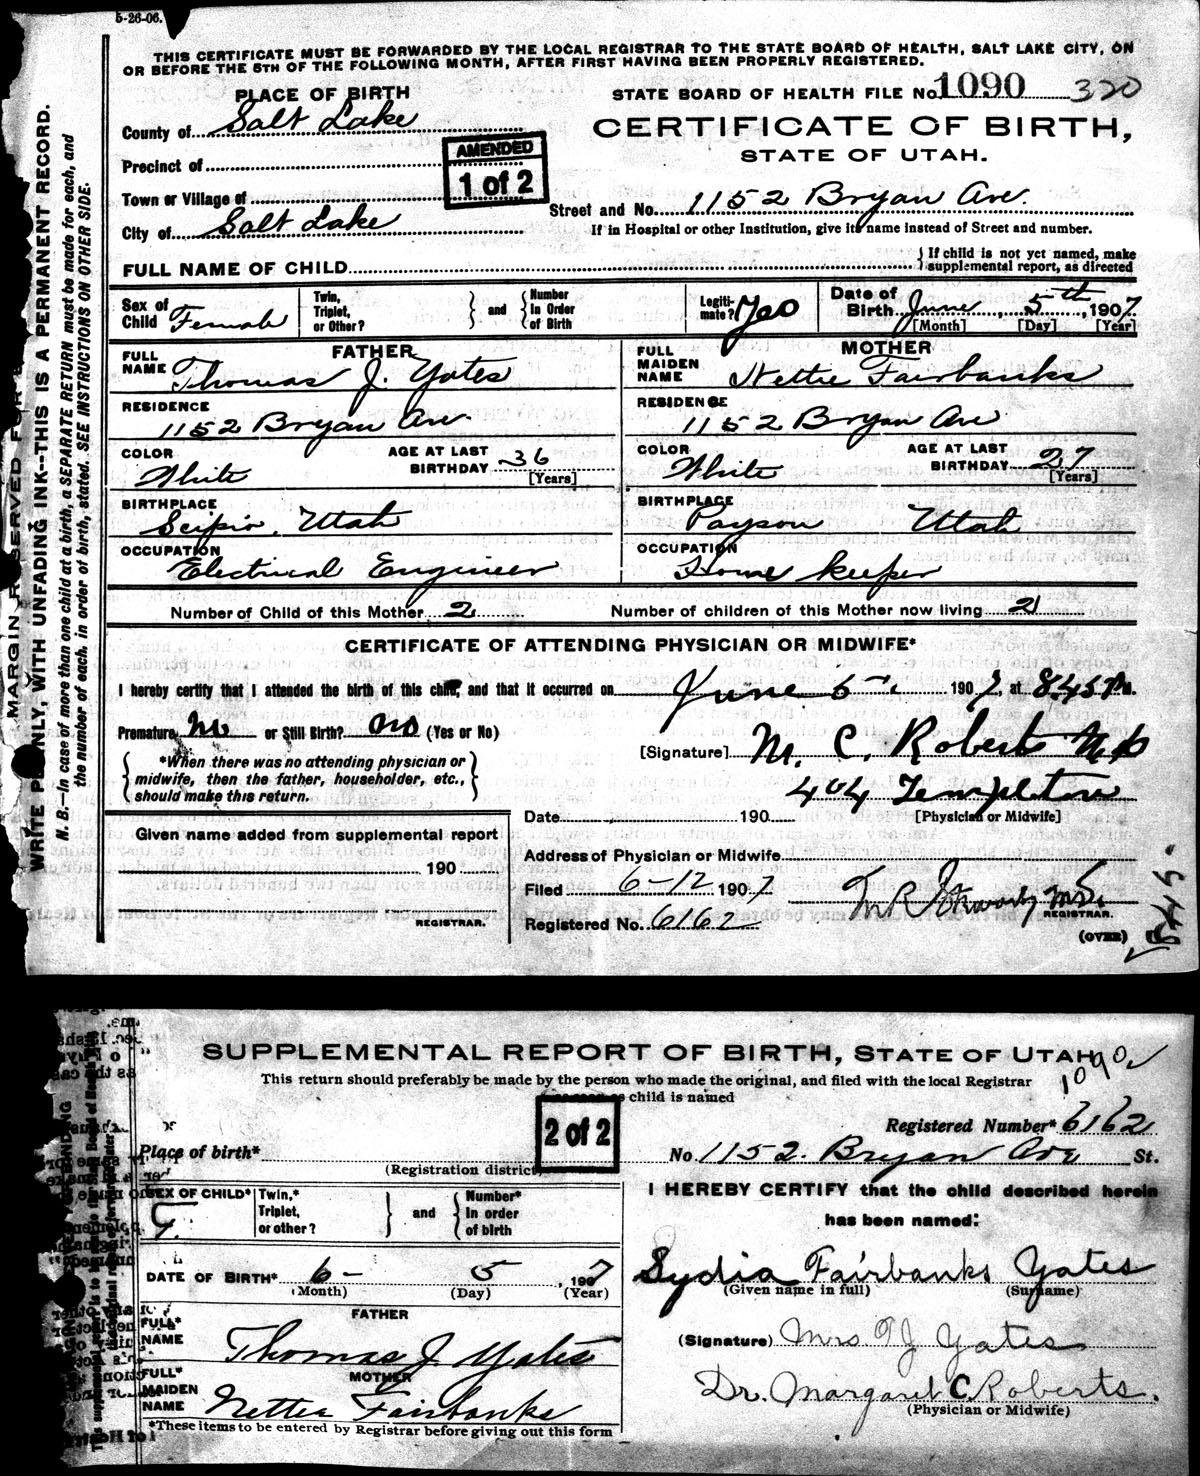 5-26-06.
THIS CERTIFICATE MUST BE FORWARDED BY THE LOCAL REGISTRAR TO THE STATE BOARD OF HEALTH, SALT LAKE CITY, ON
OR BEFORE THE 5TH OF THE FOLLOWING MONTH, AFTER FIRST HAVING BEEN PROPERLY REGISTERED.
PLACE OF BIRTH
STATE BOARD OF HEALTH FILE No. 1090 320
County of Salt Lake
CERTIFICATE OF BIRTH,
STATE OF UTAH.
Precinct of
AMENDED
1 of 2
Town or Village of
Street and No. 1152 Bryan Ave.
City of Salt Lake
If in Hospital or other Institution, give its name instead of Street and number.
FULL NAME OF CHILD
If child is not yet named, make
supplemental report, as directed
Sex of Child Female
Twin, Triplet, or Other?
and
Number in Order of Birth
Legiti-mate? Yes
Date of Birth June 5th, 1907
[Month] [Day] [Year]
FATHER
FULL NAME Thomas J. Yates
MOTHER
FULL MAIDEN NAME Nettie Fairbanks
RESIDENCE 1152 Bryan Ave
RESIDENCE 1152 Bryan Ave
COLOR White
AGE AT LAST BIRTHDAY 36 [Years]
COLOR White
AGE AT LAST BIRTHDAY 27 [Years]
BIRTHPLACE Scipio, Utah
BIRTHPLACE Payson Utah
OCCUPATION Electrical Engineer
OCCUPATION Home keeper
Number of Child of this Mother 2
Number of children of this Mother now living 2
CERTIFICATE OF ATTENDING PHYSICIAN OR MIDWIFE*
I hereby certify that I attended the birth of this child, and that it occurred on June 5th, 1907, at 8.45 P.M.
Premature No or Still Birth? No (Yes or No)
[Signature] M. C. Roberts M.D.
*When there was no attending physician or
midwife, then the father, householder, etc.,
should make this return.
404 Templeton
Date 190
[Physician or Midwife]
Given name added from supplemental report
190
REGISTRAR.
Address of Physician or Midwife
Filed 6-12 1907
REGISTRAR.
Registered No. 6162
(OVER)
MARGIN RESERVED FOR
WRITE PLAINLY, WITH UNFADING INK--THIS IS A PERMANENT RECORD.
N. B.—In case of more than one child at a birth, a SEPARATE RETURN must be made for each, and
the number of each, in order of birth, stated. SEE INSTRUCTIONS ON OTHER SIDE.
SUPPLEMENTAL REPORT OF BIRTH, STATE OF UTAH
1090
This return should preferably be made by the person who made the original, and filed with the local Registrar
as child is named
2 of 2
Registered Number* 6162
Place of birth*
(Registration district)
No. 1152. Bryan Ave St.
SEX OF CHILD* F.
Twin,* Triplet, or other?
and
Number* in order of birth
I HEREBY CERTIFY that the child described herein
has been named:
DATE OF BIRTH* 6- 5, 1907
(Month) (Day) (Year)
Lydia Fairbanks Yates
(Given name in full) (Surname)
FATHER
FULL* NAME Thomas J Yates
(Signature) Mrs T J Yates
MOTHER
FULL* MAIDEN NAME Nettie Fairbanks
Dr. Margaret C. Roberts.
(Physician or Midwife)
*These items to be entered by Registrar before giving out this form